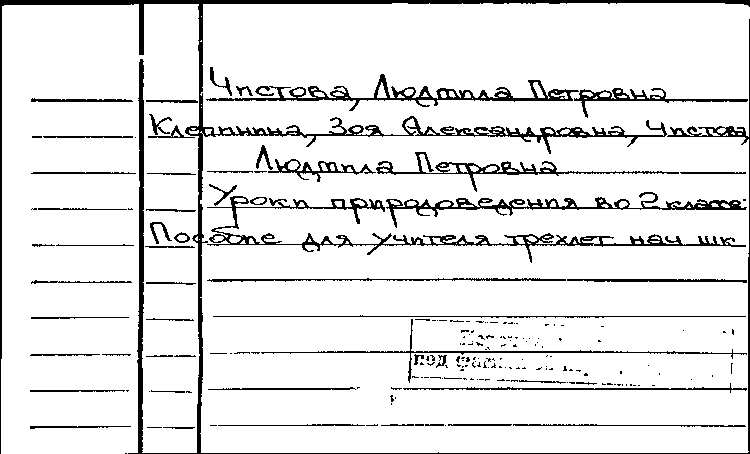 Чистова, Людмила Петровна
Клепинина, Зоя Александровна, Чистова,
Людмила Петровна
Уроки природоведения во 2 классе:
Пособие для учителя трехлет нач шк
под